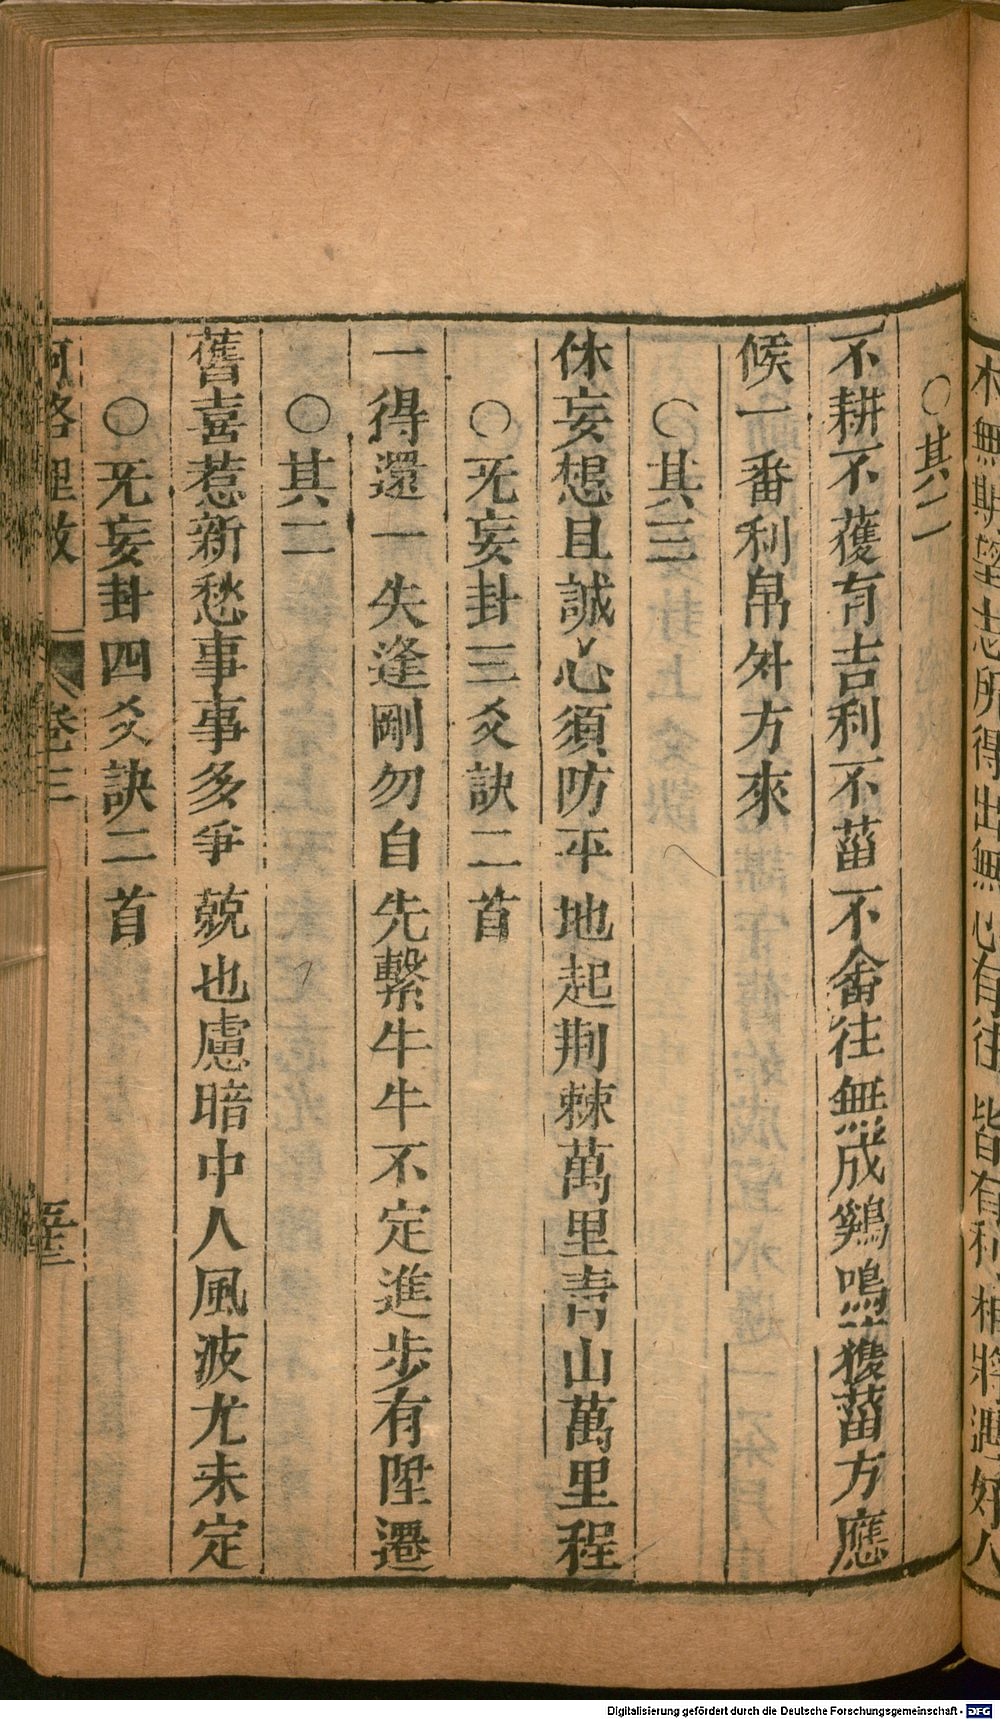 木無期望志所得出無心有往皆有利相將遇好人
○其二
不耕不獲有吉利不菑不畬往無成鷄鳴犬獲菑方應
候一番利帛外方來
○其三
休妄想且誠心須防平地起荆棘萬里靑山萬里程
○旡妄卦三爻訣二首
一得還一失逢剛勿自先繫牛牛不定進步有陞遷
○其二
舊喜惹新愁事事多爭競也慮暗中人風波尤未定
○旡妄卦四爻訣二首
河洛理數 卷三
Digitalisierung gefördert durch die Deutsche Forschungsgemeinschaft - DFG